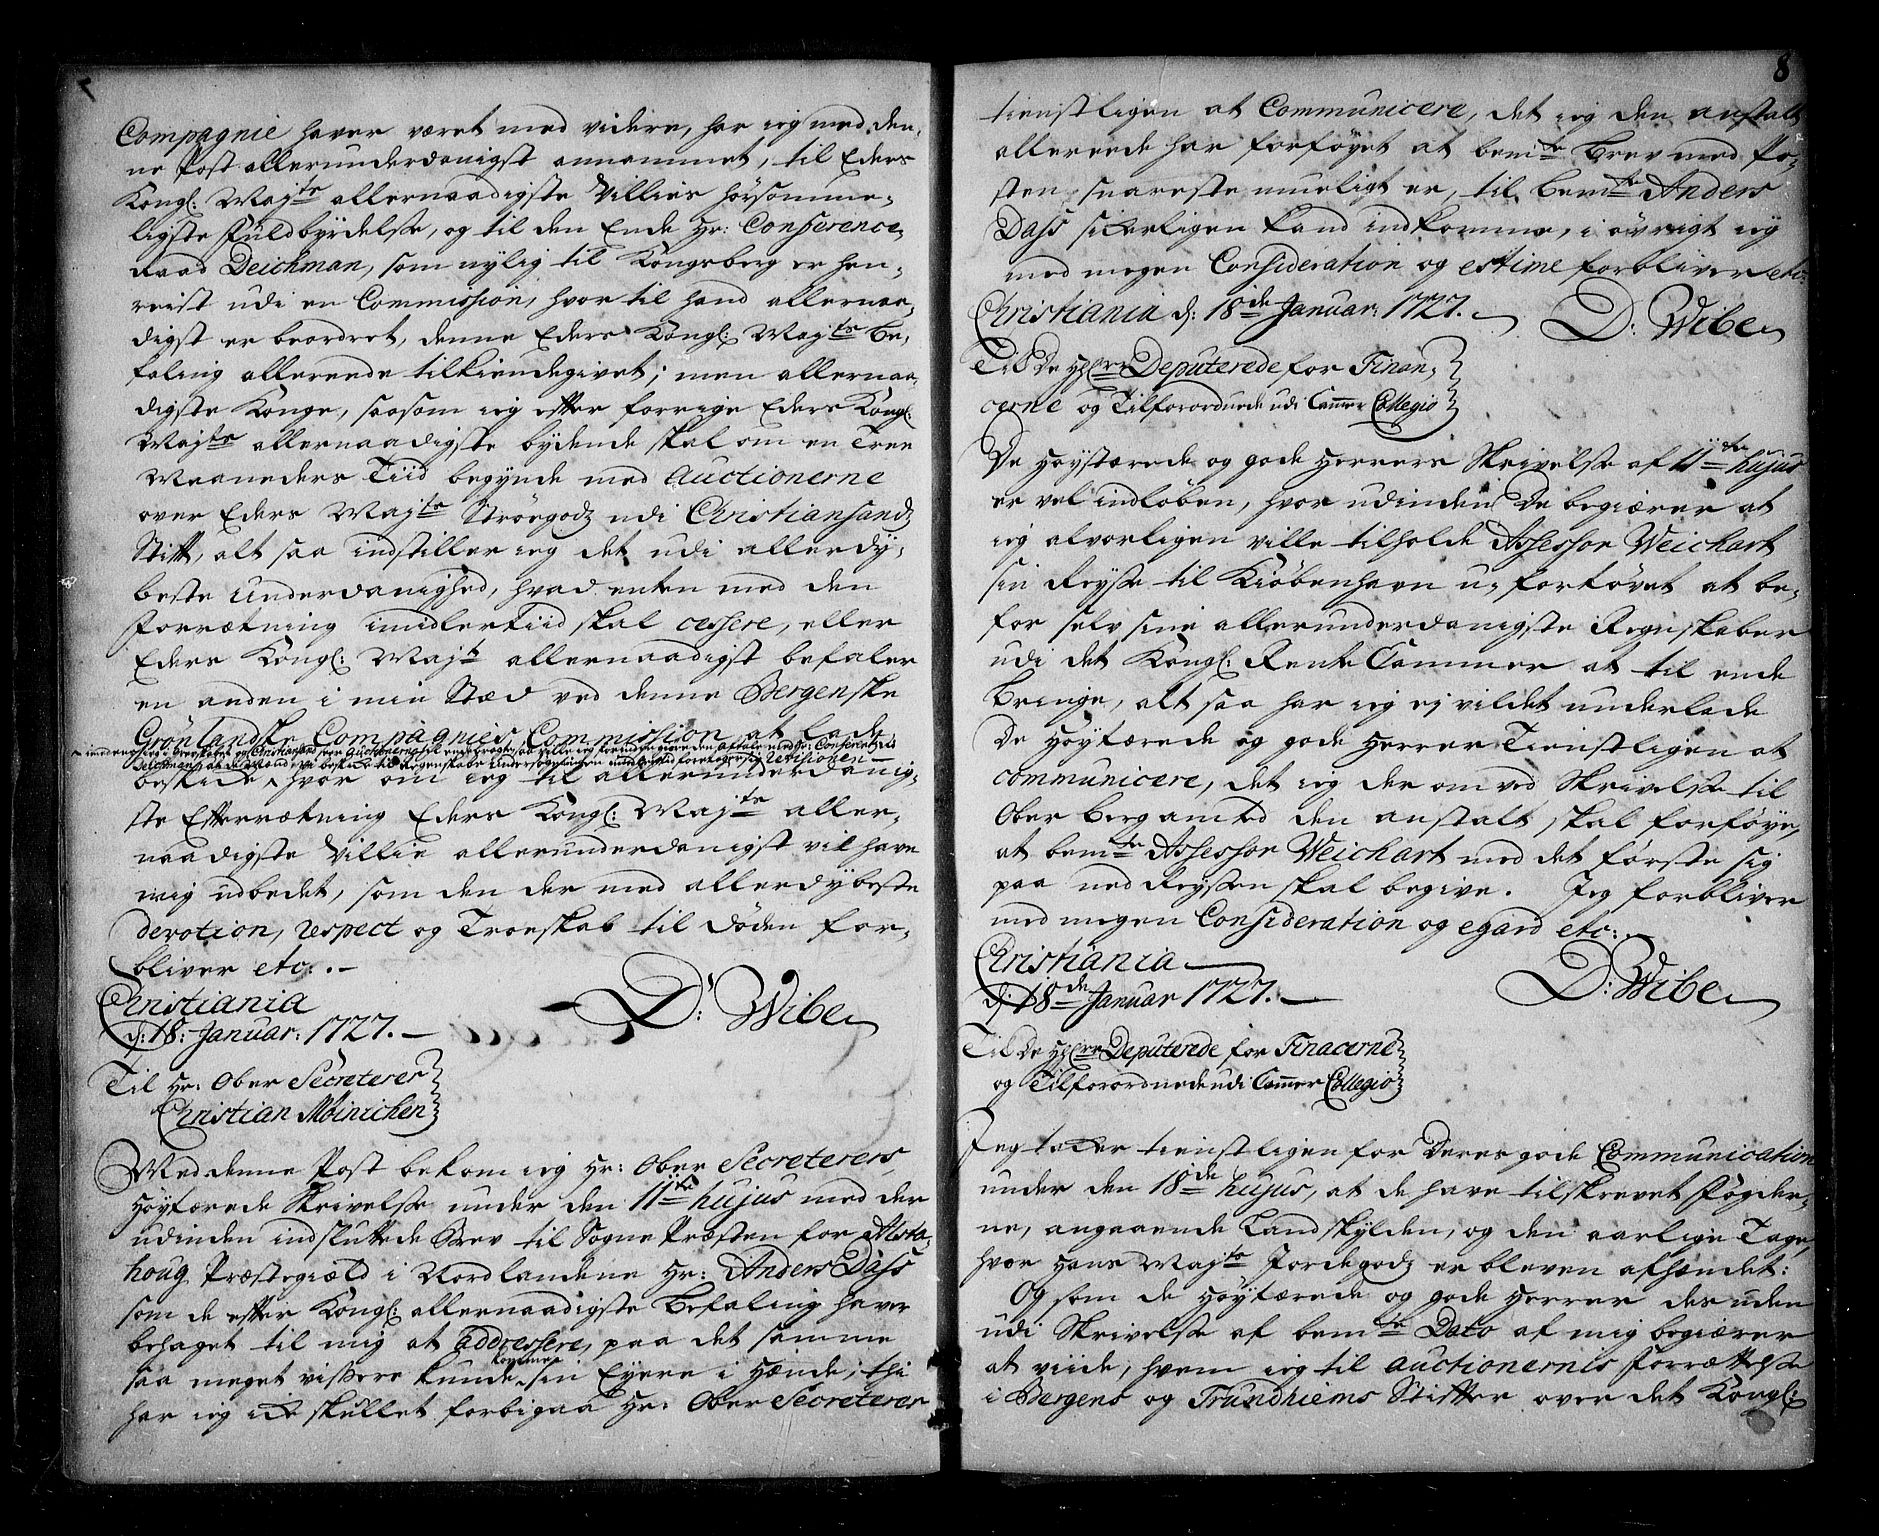 7
Compagnie haver været med videre, har ieg med den,
ne Post allerunderdanigst annammet, til Eders
Kongl: Maj:ts allernaadigste Villies høysomme,
ligste Fuldbyrdelse, og til den Ende Hr: Conference,
Raad Deichman, som nylig til Kongsberg er hen,
reist udi en Commission, hvor til hand allernaa,
digst er beordret, denne Eders Kongl: Maj:ts be,
faling allereede tilkiendegivet; men allernaa,
digste Konge, saasom ieg efter forrige Eders Kongl:
Maj:ts allernaadigste bydende skal om en Tree
Maaneders Tiid begynde med Auctionerne
over Eders Maj:ts Strøegodz udi Christiansandz
Stift, alt saa indstiller ieg det udi allerdy,
beste Underdanighed, hvad enten med den
Forretning imidlertiid skal cessere, eller
Eders Kongl: Maj:ts allernaadigst befaler
en anden i min Stæd ved denne Bergenske
Grönlandske Compagnies Commission at lade
Revisionen
beskikke, hvor om ieg til allerunderdanig,
ste Efterrætning Eders Kongl: Maj:ts aller,
naadigste Villie allerunderdanigst vil have
mig udbedet, som den der med allerdybeste
devotion, respect og Troeskab til Döden for,
bliver etc: . -
Christiania
d: 18: Januar: 1727. -
D: Wibe
Til Hr: Ober Secreterer
Christian Möinichen
Med denne Post bekom ieg Hr: Ober Secreterers
Høytærede Skrivelse under den 11te hujus med der
udinden indsluttede Brev til Sogne Præsten for Alsta,
houg Præstegield i Nordlandene Hr: Anders Dass
som de efter Kongl: allernaadigste Befaling haver
behaget til mig at addressere, paa det samme
saa meget vissere kunde komme sin Eyere i Hænde; thi
har ieg icke skullet forbigaa Hr: Ober Secreterer
8
tienstligen at Communicere, det ieg den anstalt
allereede har forföyet at bem:te Brev med Po,
sten snareste mueligt er, til bem:te Anders
Dass sikerligen kand indkomme, i övrigt ieg
med megen Consideration og estime forbliver etc:
Christiania d: 18de Januar: 1727. -
D: Wibe
Til De Hl:rr Deputerede for Finan,
cerne og Tilforordnede udi Cammer Collegio
De Høystærede og gode Herrers Skrivelse af 11te hujus
er vel indløben, hvor udinden De begiærer at
ieg alvorligen ville tilholde Assessor Weichart
sin Reyse til Kiöbenhavn u-fortövet at be,
for selv sine allerunderdanigste Regnskaber
udi det Kongl: Rente Cammer at til ende
bringe, alt saa har ieg ej vildet underlade
De Høytærede og gode Herrer Tienstligen at
communicere, det ieg der om ved Skrivelse til
Ober Bergamted den anstalt skal forföye,
at bem:te Assessor Weichart med det förste sig
paa ned Reysen skal begive. Jeg forbliver
med megen Consideration og egard etc: .
Christiania
d: 18de Januar 1727. -
D: Wibe
Til De Hl:rr Deputerede for Finacerne
og Tilforordnede udi Cammer Collegio
Jeg tacker tienstligen for Deres gode Communication
under den 18de hujus, at de have tilskrevet Fogder,
ne, angaaende Landskylden, og den aarlige Tage,
hvor Hans Maj:ts Jordegodz er bleven afhændet:
Og som de Høytærede og gode Herrer des uden
udi Skrivelse af bem:te Dato af mig begiærer
at viide, hvem ieg til auctionernis Forrættelse
i Bergens og Trundhiems Stifter over det Kongl: